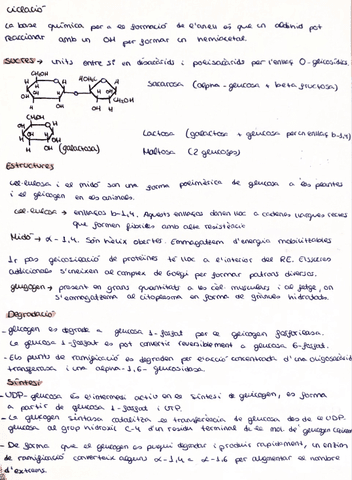 Ciclació
La base química per a la formació de l'anell és que un aldehid pot
reaccionar amb un OH per formar un hemiacetal.
Sucres → units entre sí en disacàrids i polisacàrids per l'enllaç O-glucosídic.
CH2OH HOH2C
OH OH CH2OH
Sacarosa (alpha-glucosa + beta fructosa)
CH2OH
OH
(galactosa)
Lactosa (galactosa + glucosa per un enllaç b-1,4)
Maltosa (2 glucoses)
Estructures
Cel·lulosa i el midó són una forma polimèrica de glucosa a les plantes
i el glicogen en els animals.
Cel·lulosa → enllaços b-1,4. Aquests enllaços donen lloc a cadenes llargues rectes
que formen fibrilles amb alta resistència.
Midó → α-1,4. Són hèlix obertes. Emmagatzem d'energia mobilitzables
1r pas glicosilació de proteïnes té lloc a l'interior del RE. Els sucres
addicionals s'uneixen al complex de Golgi per formar patrons diversos.
glucogen → present en grans quantitats a les cèl. musculars i al fetge, on
s'emmagatzema al citoplasma en forma de grànuls hidratats.
Degradació
- glicogen es degrada a glucosa 1-fosfat per el glicogen fosforilasa.
La glucosa 1-fosfat es pot convertir reversiblement a glucosa 6-fosfat.
- Els punts de ramificació es degraden per l'acció concertada d'una oligosacàrid
transferasa i una alpha-1,6-glucosidasa.
Síntesi
- UDP-glucosa és l'intermedi actiu en la síntesi de glicogen, es forma
a partir de glucosa 1-fosfat i UTP.
- La glicogen sintasa catalitza la transferència de glucosa des de la UDP-
glucosa al grup hidroxil C-4 d'un residu terminal de la mol. de glicogen
- De forma que el glicogen es pugui degradar i produir ràpidament, un enzim
de ramificació converteix alguns α-1,4 a α-1,6 per augmentar el nombre
d'extrems.